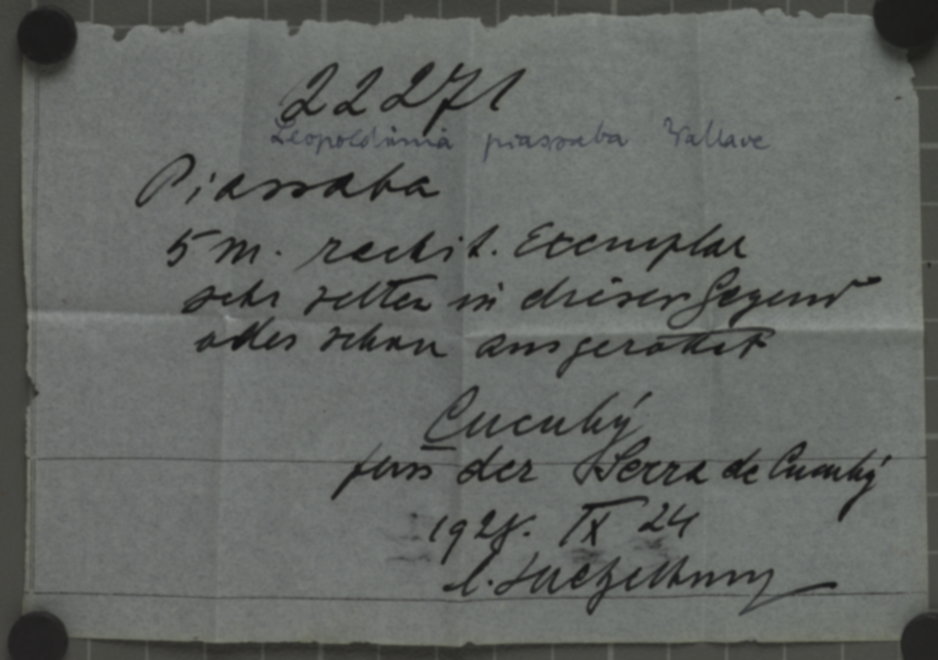 22271
Leopoldinia piassaba Wallace
Piassaba
5 m. rachit. Exemplar
sehr selten in dieser Gegend
oder schon ausgerottet
Cucuhý
fuss der Serra de Cucuhý
1928. IX 24
l. Luetzelburg